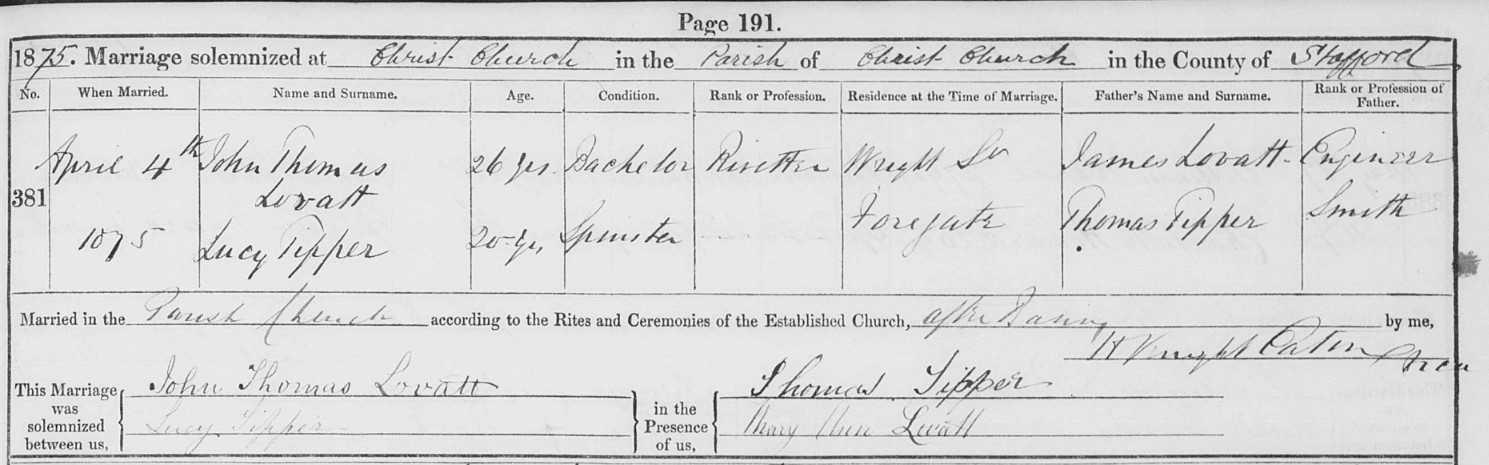 Page 191.
1875. Marriage solemnized at Christ Church in the Parish of Christ Church in the County of Stafford
No. When Married. Name and Surname. Age. Condition. Rank or Profession. Residence at the Time of Marriage. Father's Name and Surname. Rank or Profession of Father.
381 April 4th 1875
John Thomas Lovatt 26 yrs Bachelor Rivetter Wright St James Lovatt Engineer
Lucy Tipper 20 yrs Spinster Foregate Thomas Tipper Smith
Married in the Parish Church according to the Rites and Ceremonies of the Established Church, after Banns by me,
H Knight Eaton
This Marriage was solemnized between us, John Thomas Lovatt
Lucy Tipper
in the Presence of us, Thomas Tipper
Mary Ann Lovatt